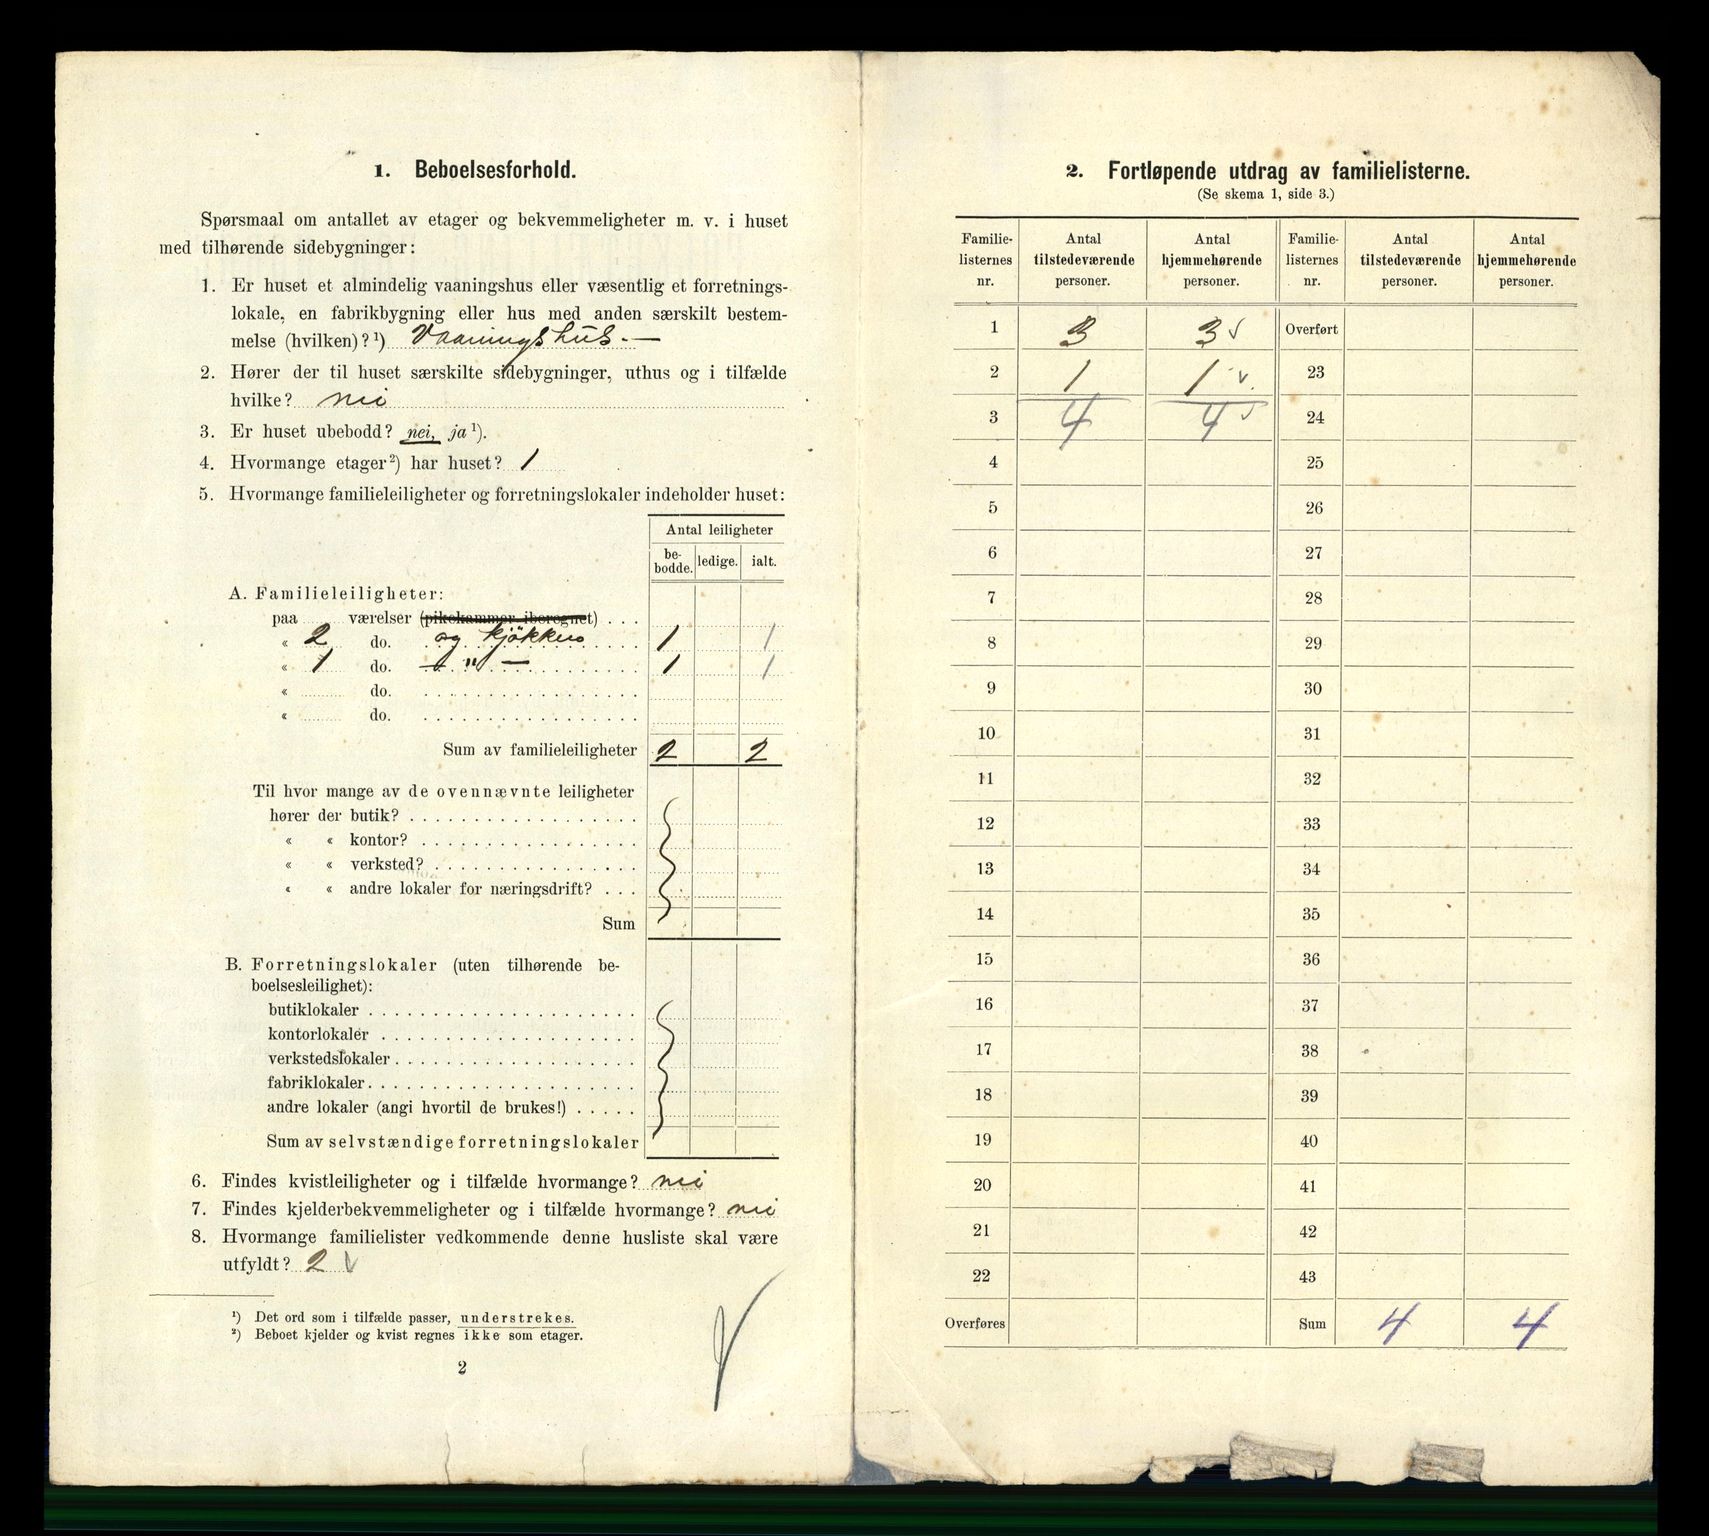 1. Beboelsesforhold.
Spørsmaal om antallet av etager og bekvemmeligheter m. v. i huset
med tilhørende sidebygninger:
1. Er huset et almindelig vaaningshus eller væsentlig et forretnings-
lokale, en fabrikbygning eller hus med anden særskilt bestem-
melse (hvilken)? ¹) Vaaningshus. —
2. Hører der til huset særskilte sidebygninger, uthus og i tilfælde
hvilke? nei
3. Er huset ubebodd? nei, ja ¹).
4. Hvormange etager ²) har huset? 1
5. Hvormange familieleiligheter og forretningslokaler indeholder huset:
Antal leiligheter
be-bodde. ledige. ialt.
A. Familieleiligheter:
paa værelser (pikekammer iberegnet) . . .
« 2 do. og kjøkken 1 1
« 1 do. — " — 1 1
« do.
« do.
Sum av familieleiligheter 2 2
Til hvor mange av de ovennævnte leiligheter
hører der butik?
« « kontor?
« « verksted?
« « andre lokaler for næringsdrift? . . .
Sum
B. Forretningslokaler (uten tilhørende be-
boelsesleilighet):
butiklokaler
kontorlokaler
verkstedslokaler
fabriklokaler
andre lokaler (angi hvortil de brukes!)
Sum av selvstændige forretningslokaler
6. Findes kvistleiligheter og i tilfælde hvormange? nei
7. Findes kjelderbekvemmeligheter og i tilfælde hvormange? nei
8. Hvormange familielister vedkommende denne husliste skal være
utfyldt? 2 v
¹) Det ord som i tilfælde passer, understrekes.
²) Beboet kjelder og kvist regnes ikke som etager.
2
2. Fortløpende utdrag av familielisterne.
(Se skema 1, side 3.)
Familie- Antal Antal Familie- Antal Antal
listernes tilstedeværende hjemmehørende listernes tilstedeværende hjemmehørende
nr. personer. personer. nr. personer. personer.
1 3 3 v Overført
2 1 1 v 23
3 4 4 v 24
4 25
5 26
6 27
7 28
8 29
9 30
10 31
11 32
12 33
13 34
14 35
15 36
16 37
17 38
18 39
19 40
20 41
21 42
22 43
Overføres Sum 4 4